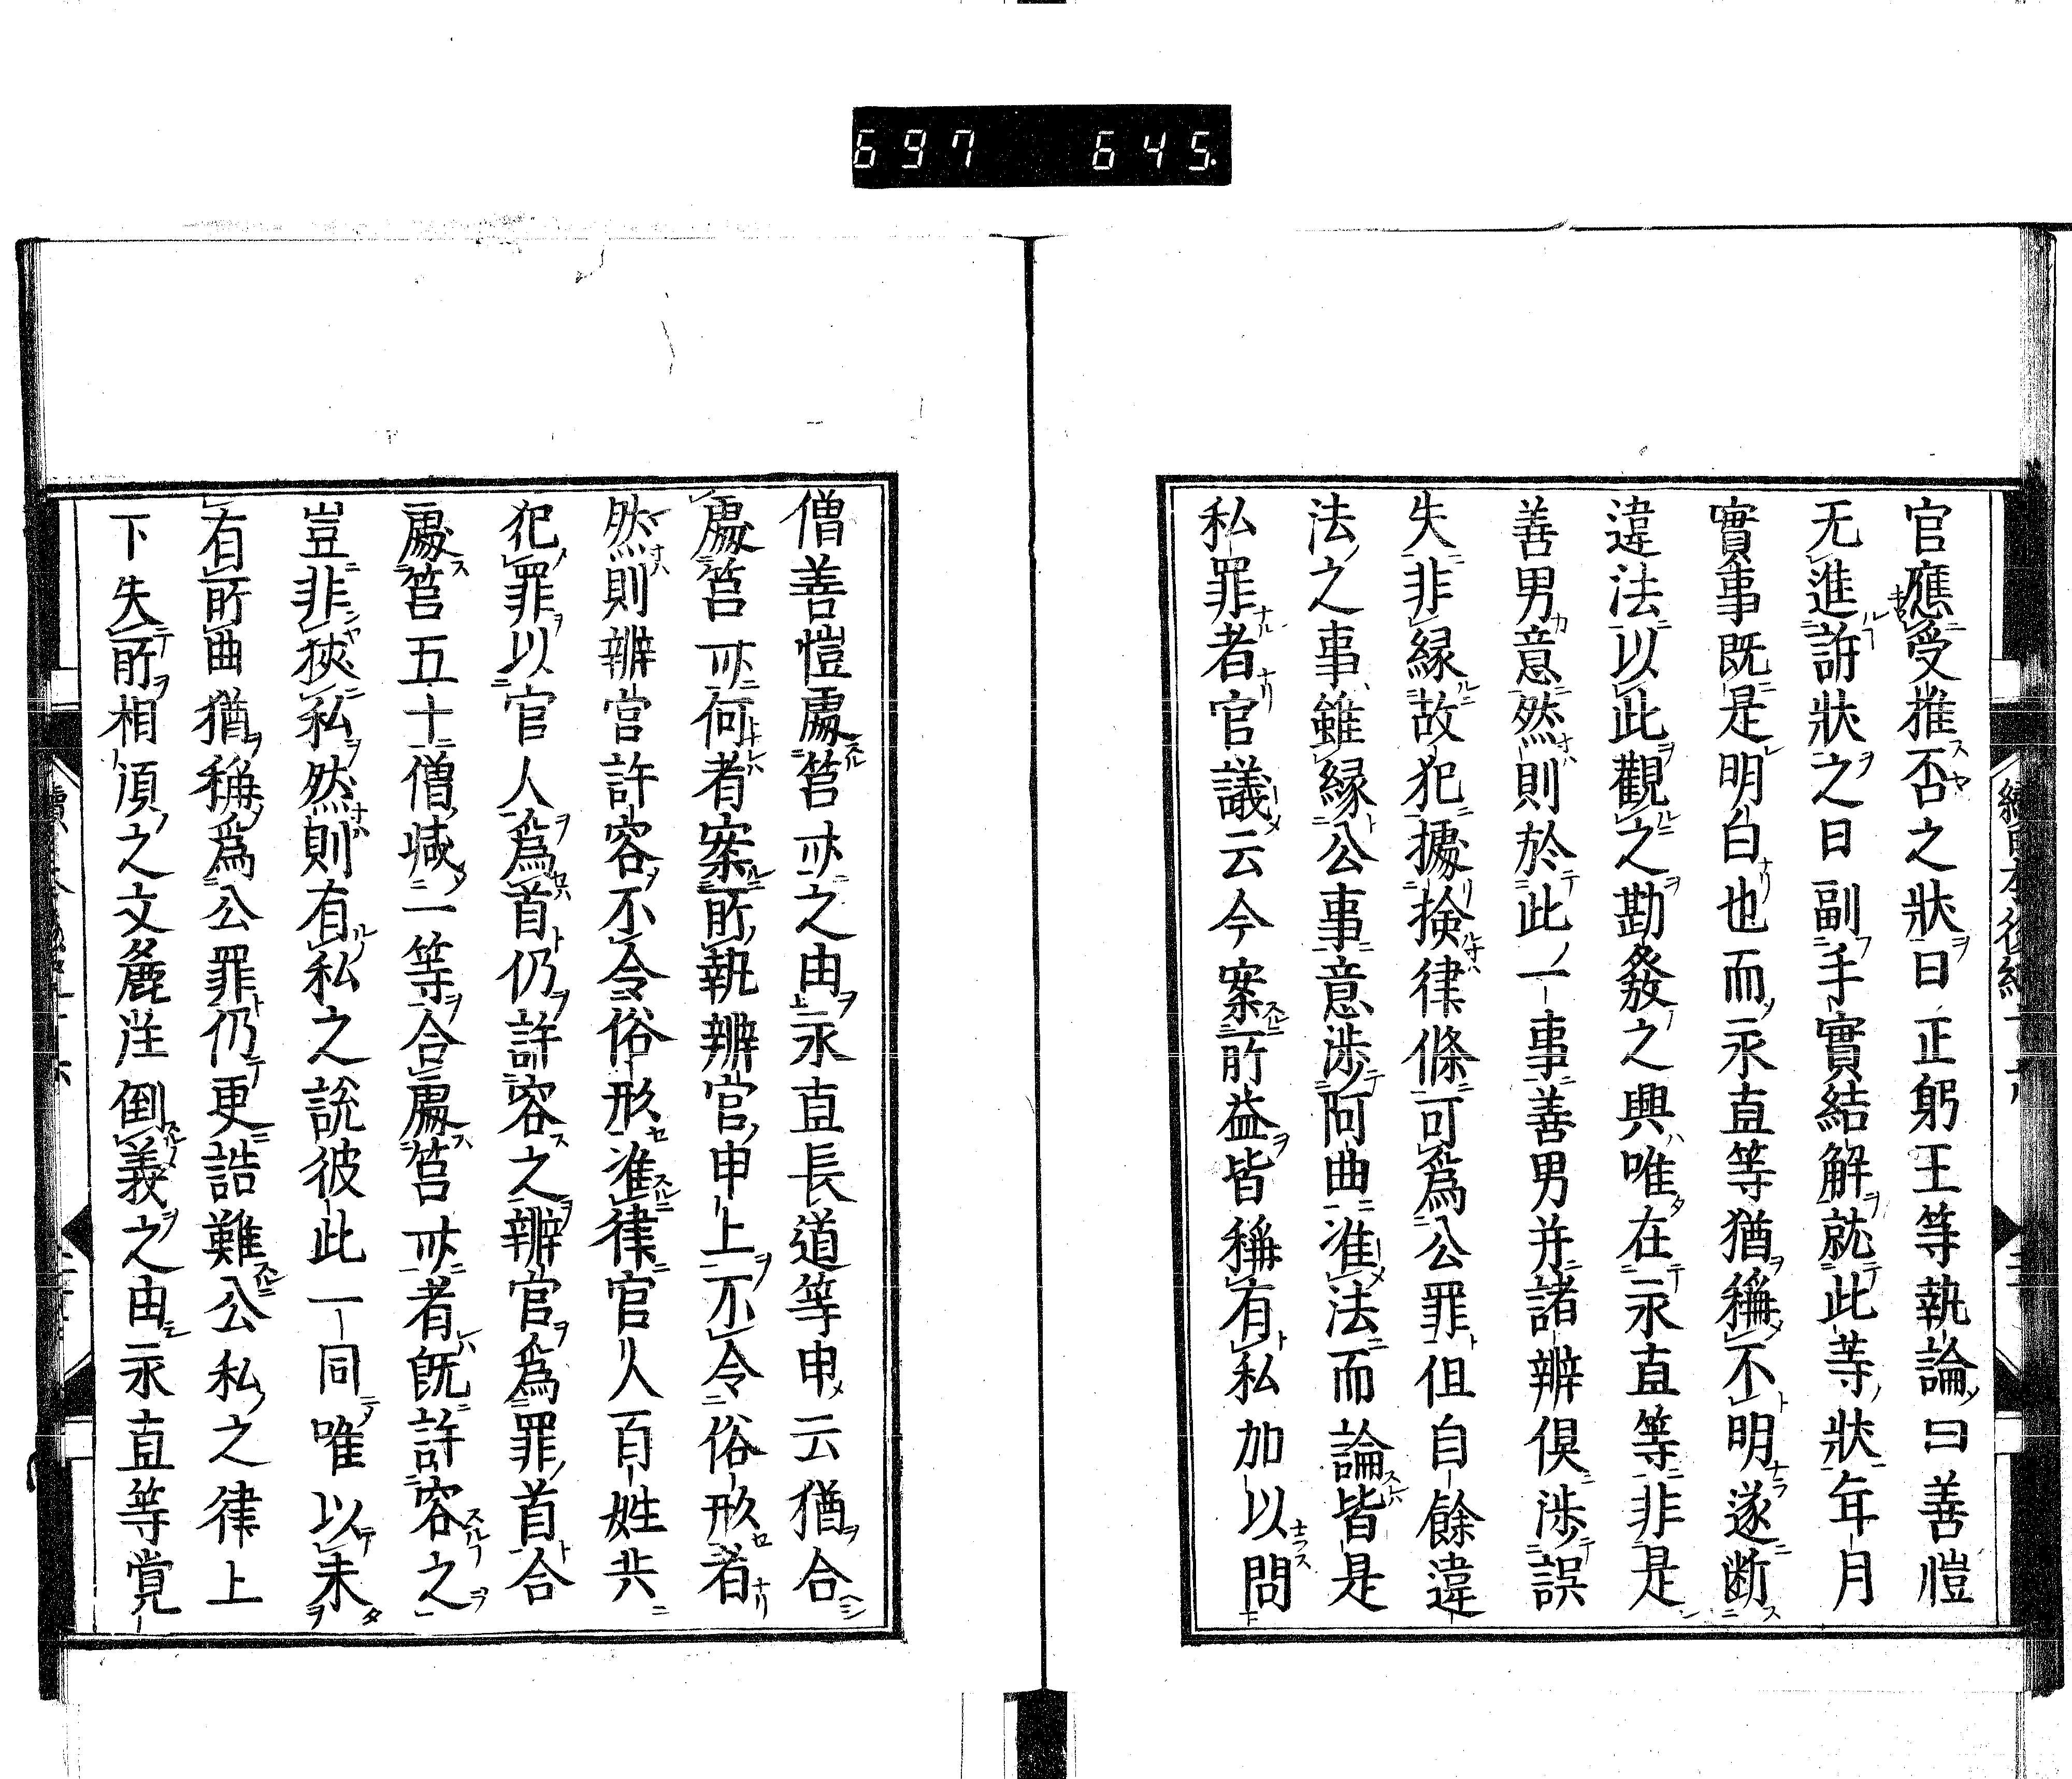 697 645.
官應受推否之狀曰正躬王等執論曰善愷
无進訴狀之日副手實結解就此等狀年月
實事既是明白也而永直等猶稱不明遂断
違法以此觀之勘發之興唯在永直等非是
善男意然則於此一事善男并諸辨俱涉誤
失非緑故犯據撿律條可爲公罪但自餘違
法之事雖縁公事意涉阿曲准法而論皆是
私罪者官議云今案所益皆稱有私加以問
僧善愷處笞卅之由永直長道等申云猶合
處笞卌何者案所執辨官申上不令俗形者
然則辨官許容不令俗形准律官人百姓共
犯罪以官人爲首仍許容之辨官爲罪首合
處笞五十僧減一等合處笞卌者既許容之
豈非挾私然則有私之說彼此一同唯以未
有所曲猶稱爲公罪仍更誥難公私之律上
下失所相須之文麁注倒義之由永直等覚